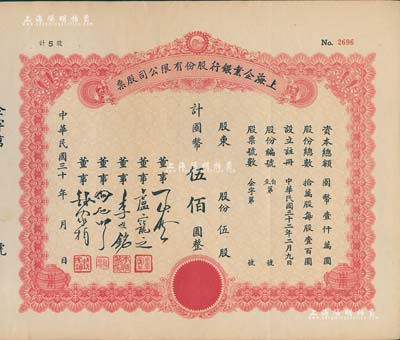 計5股
No. 2696
上海企業銀行股份有限公司股票
資本總額 國幣壹仟萬圓
股份總數 拾萬股每股壹百圓
設立註冊 中華民國三十二年二月九日
股份編號 自第 至 號
股票號數 企字第 號
股東
股份 伍股
計國幣 伍佰 圓整
董事
董事
董事
董事
董事
中華民國三十 年 月 日